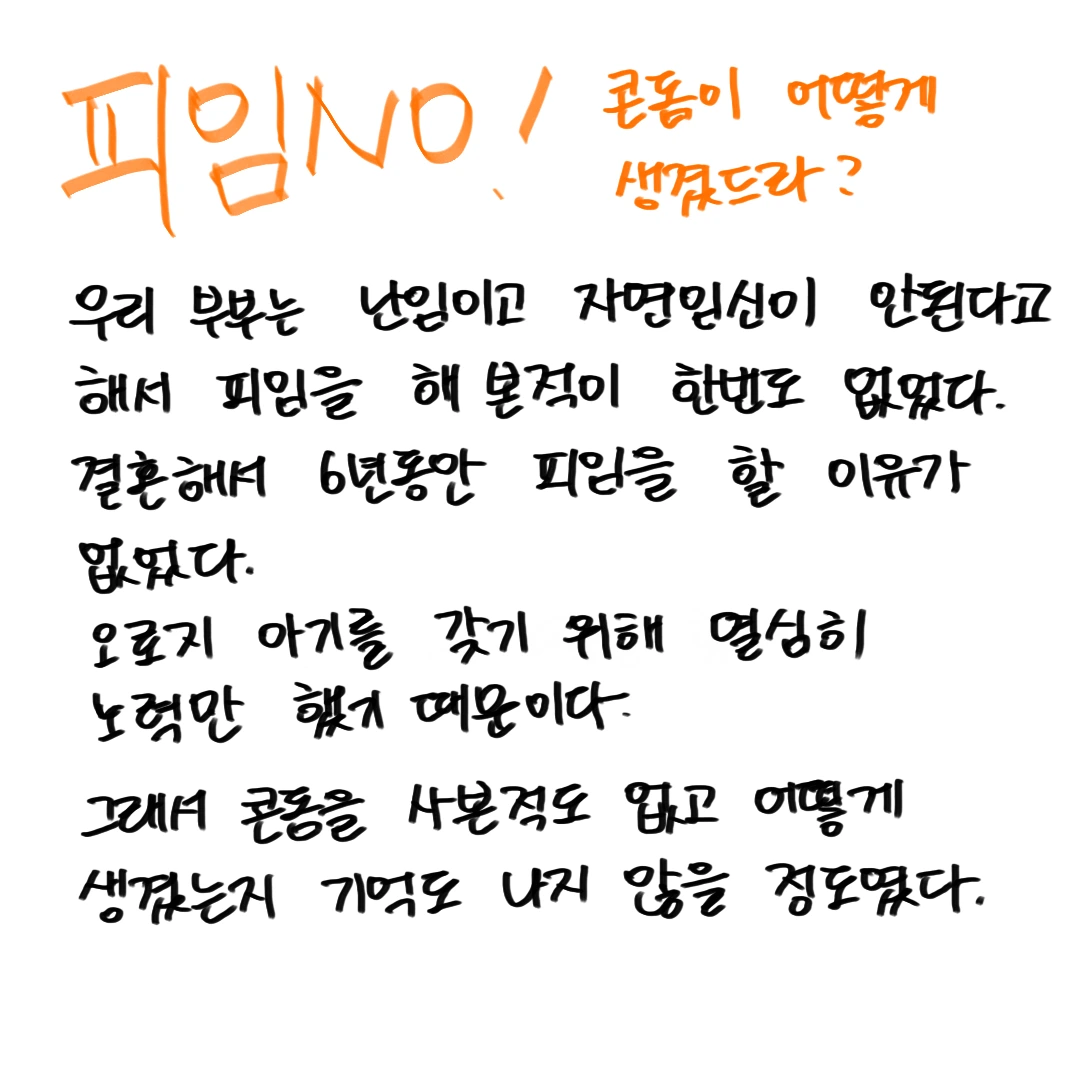 피임NO!
콘돔이 어떻게
생겼드라?
우리 부부는 난임이고 자연임신이 안된다고
해서 피임을 해 본적이 한번도 없었다.
결혼해서 6년동안 피임을 할 이유가
없었다.
오로지 아기를 갖기 위해 열심히
노력만 했기 때문이다.
그래서 콘돔을 사본적도 없고 어떻게
생겼는지 기억도 나지 않을 정도였다.